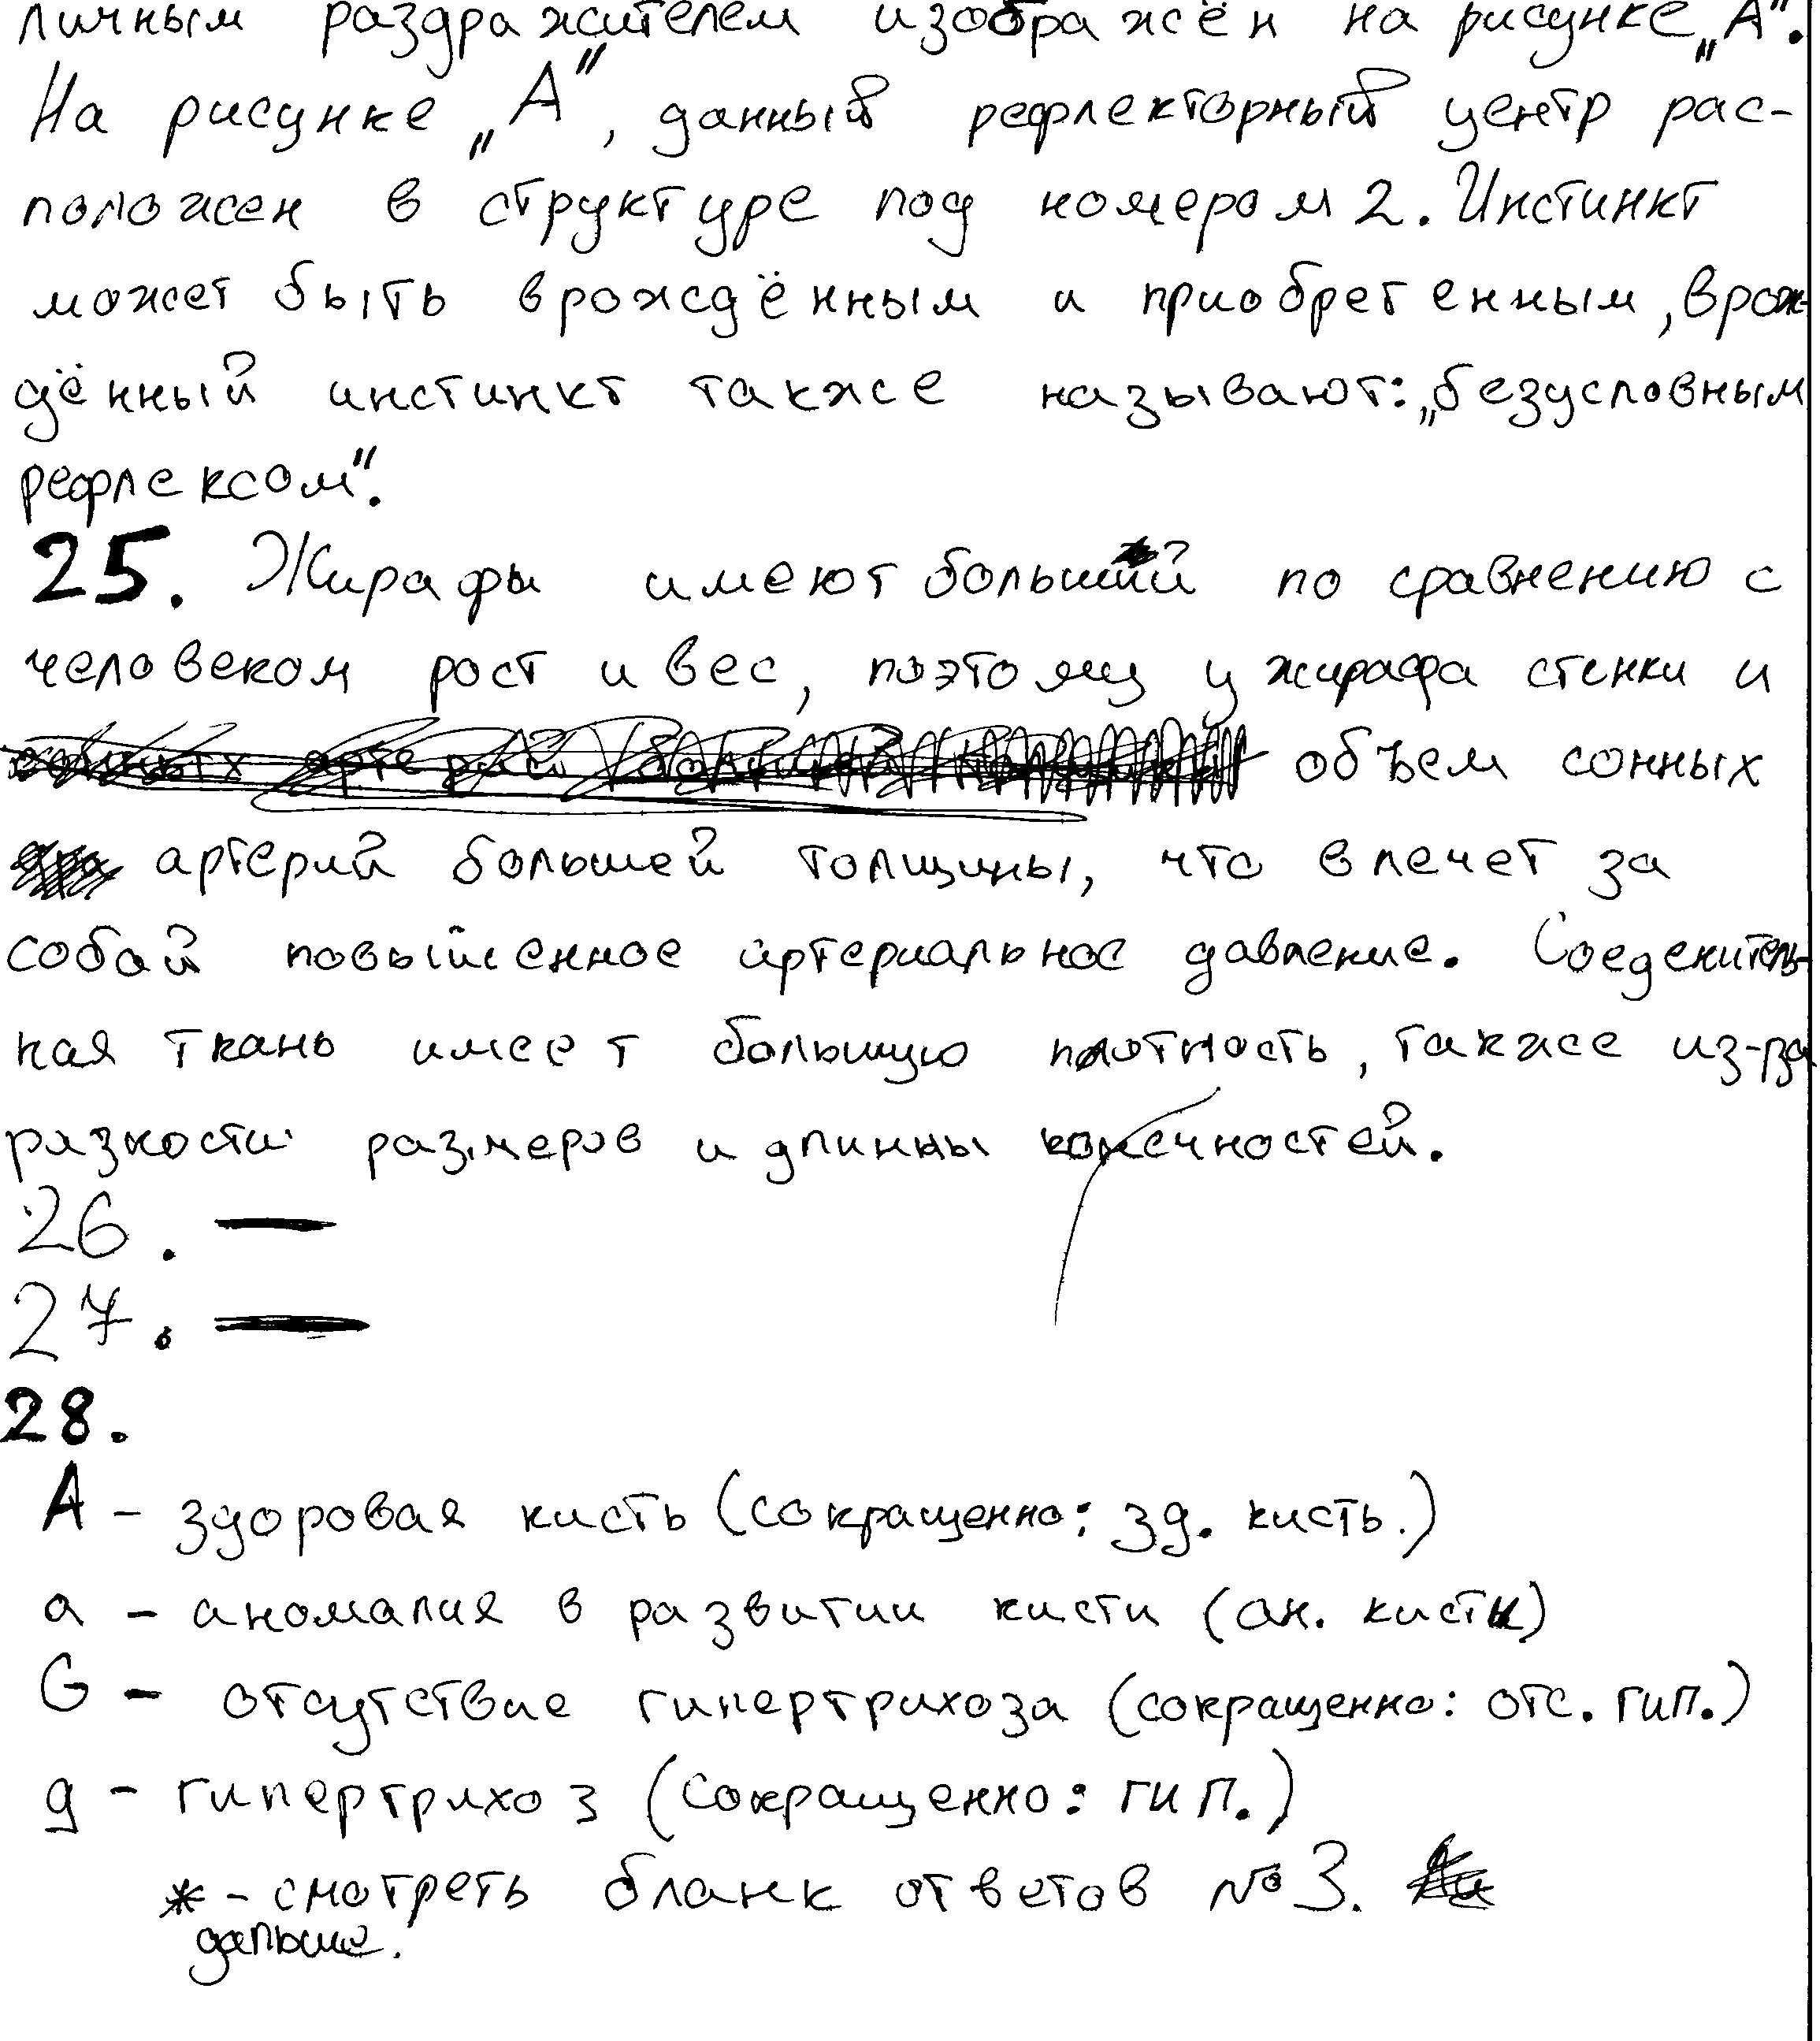 личным раздражителем изображён на рисунке „А".
На рисунке „А", данный рефлекторный центр рас-
положен в структуре под номером 2. Инстинкт
может быть врождённым и приобретенным, врож-
дённый инстинкт также называют: „безусловным
рефлексом".
25. Жирафы имеют больший по сравнению с
человеком рост и вес, поэтому у жирафа стенки и
объем сонных
артерий большей толщины, что влечет за
собой повышенное артериальное давление. Соеденитель-
ная ткань имеет большую плотность, также из-за
разности размеров и длинны конечностей.
26. —
27. —
28.
А - здоровая кисть (сокращенно: зд. кисть.)
а - аномалия в развитии кисти (ан. кисти)
G - отсутствие гипертрихоза (сокращенно: отс. гип.)
g - гипертрихоз (сокращенно: гип.)
* - смотреть бланк ответов №3.
дальше.